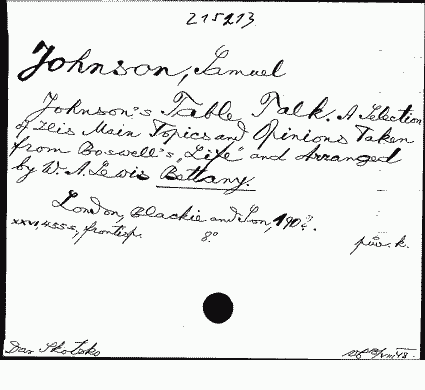 215213
Johnson, Samuel
Johnson's Table Talk. A Selection
of His Main Topics and Opinions Taken
from Boswell's "Life" and Arranged
by W. A. Lewis Bettany.
London, Blackie and Son, 190
frontisp. 8:o
k.
Dar Skotsko